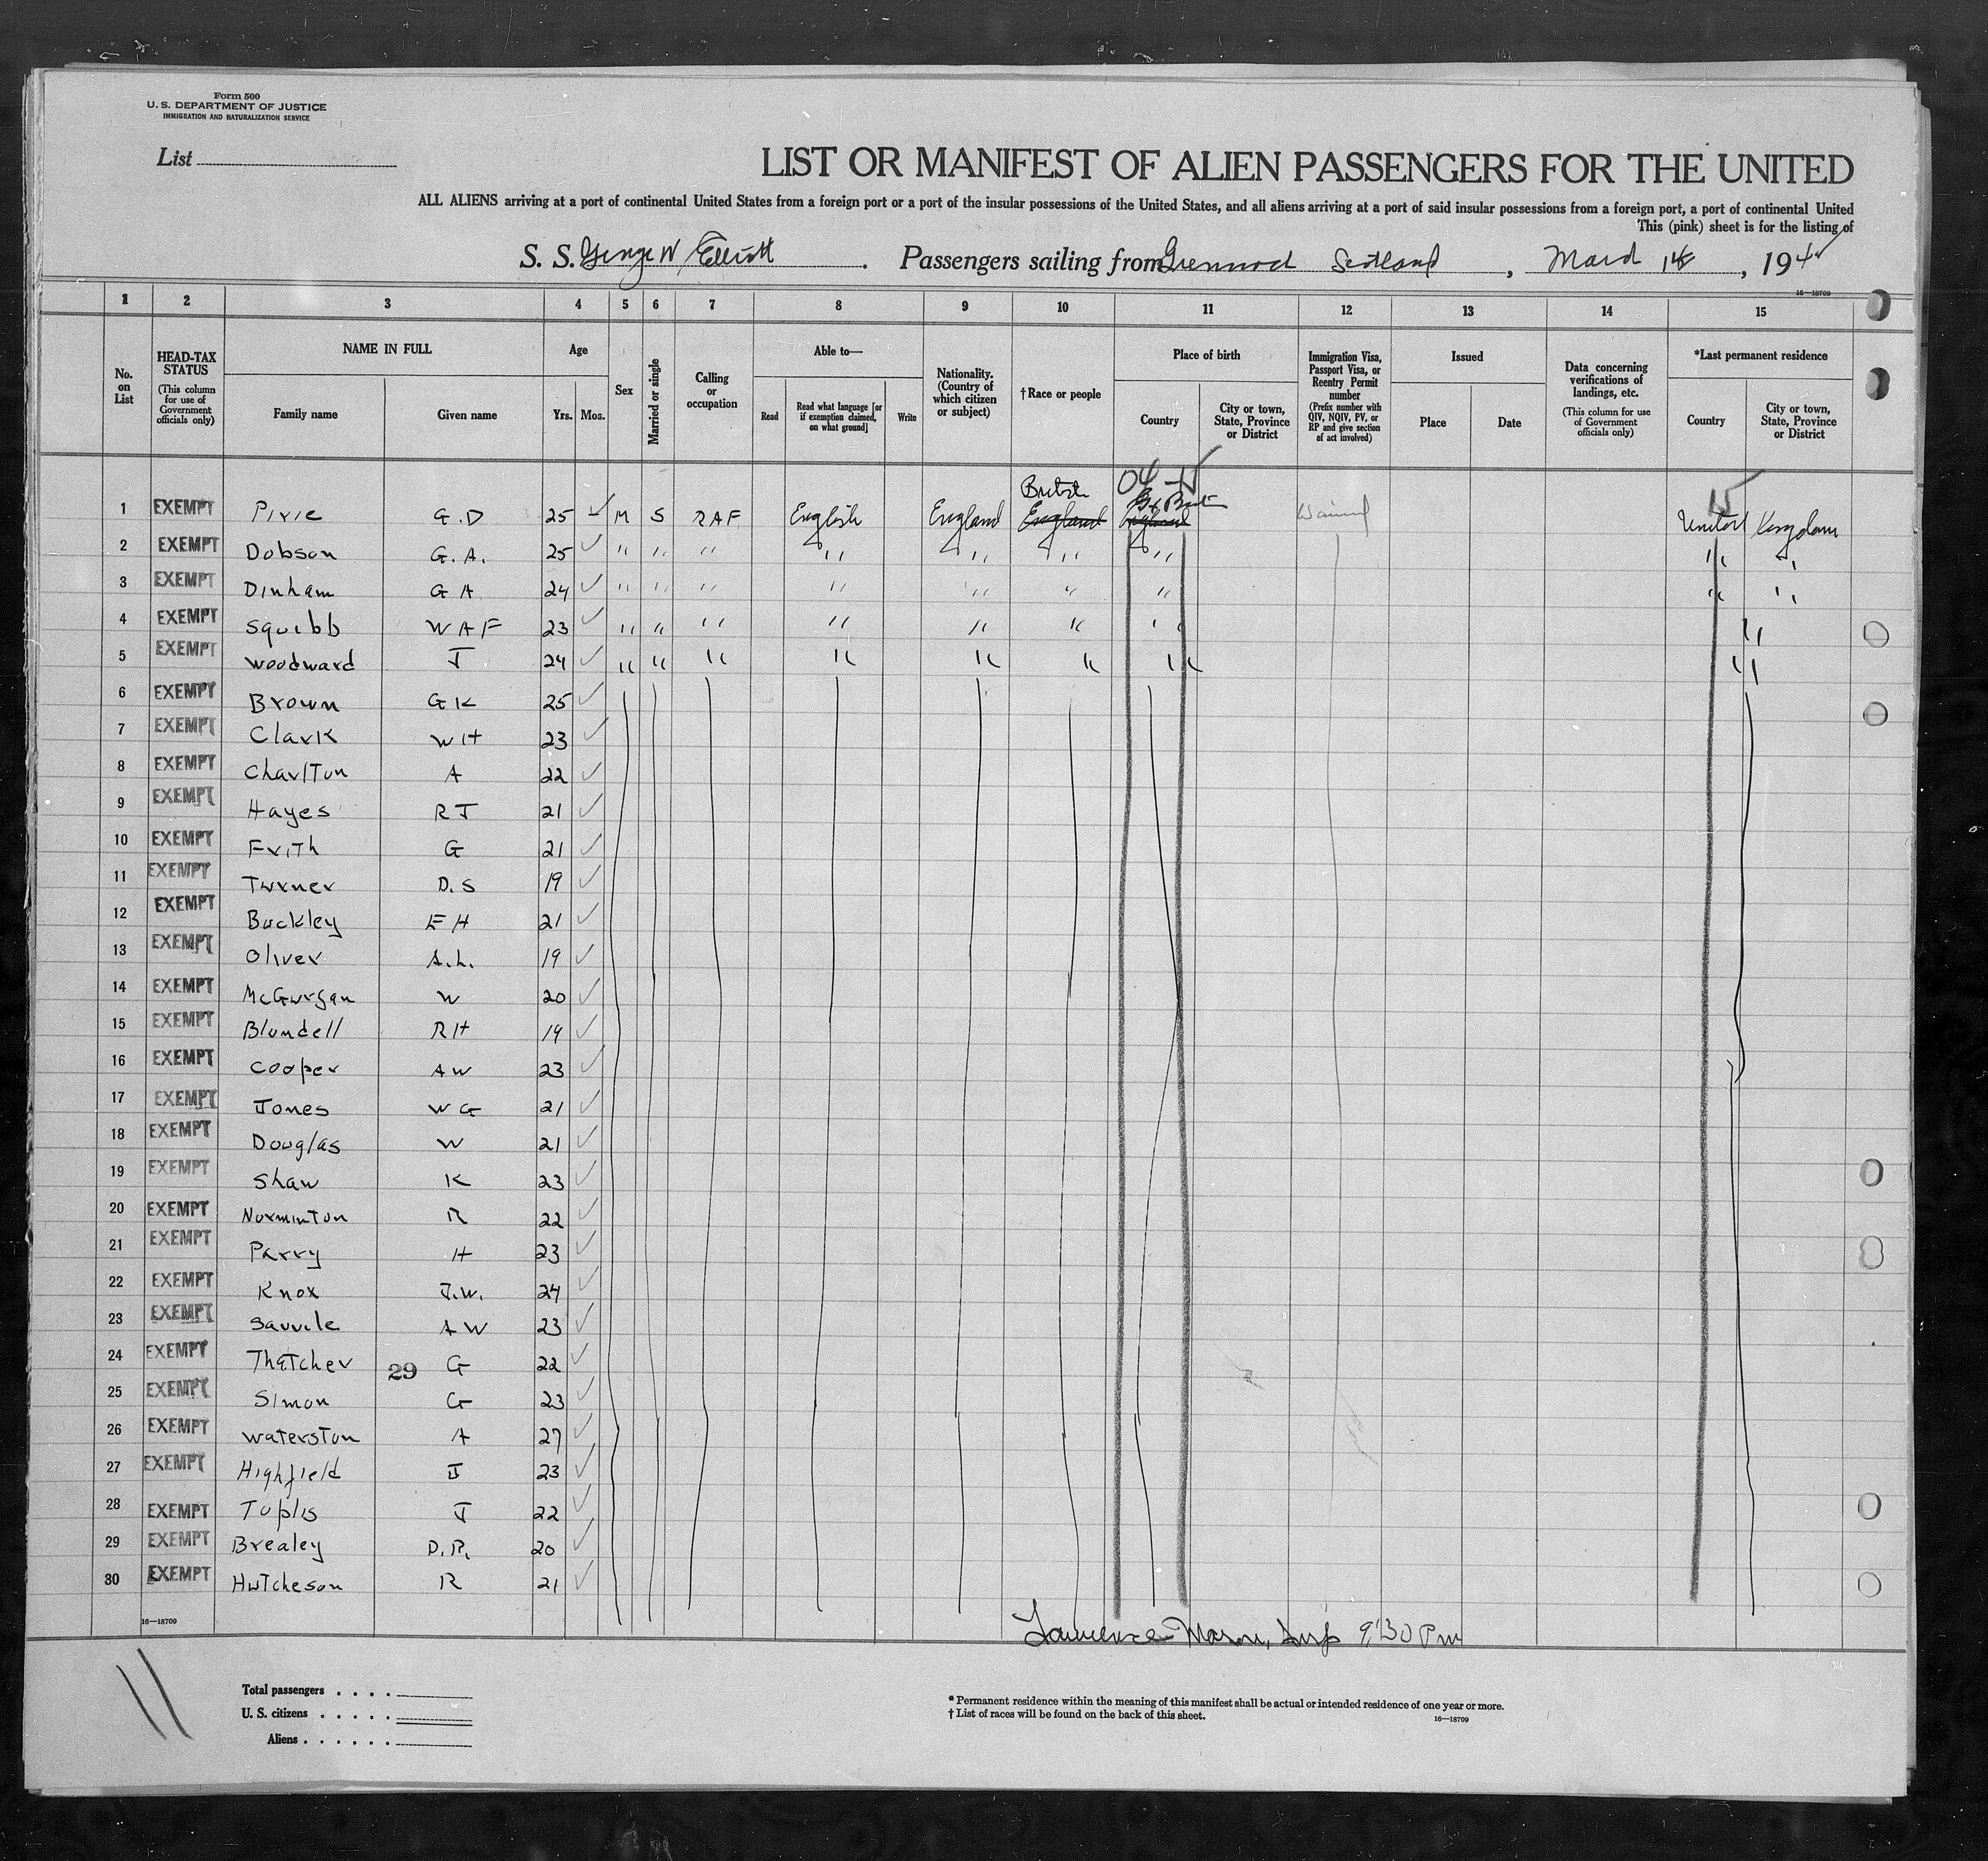 Form 500
U. S. DEPARTMENT OF JUSTICE
IMMIGRATION AND NATURALIZATION SERVICE
List
LIST OR MANIFEST OF ALIEN PASSENGERS FOR THE UNITED
ALL ALIENS arriving at a port of continental United States from a foreign port or a port of the insular possessions of the United States, and all aliens arriving at a port of said insular possessions from a foreign port, a port of continental United
This (pink) sheet is for the listing of
S. S. George W Elliott . Passengers sailing from Scotland , 194
16—18709
1 2 3 4 5 6 7 8 9 10 11 12 13 14 15
No. on List
HEAD-TAX STATUS (This column for use of Government officials only)
NAME IN FULL
Family name
Given name
Age
Yrs.
Mos.
Sex
Married or single
Calling or occupation
Able to—
Read
Read what language [or if exemption claimed, on what ground]
Write
Nationality. (Country of which citizen or subject)
† Race or people
Place of birth
Country
City or town, State, Province or District
Immigration Visa, Passport Visa, or Reentry Permit number (Prefix number with QIV, NQIV, PV, or RP and give section of act involved)
Issued
Place
Date
Data concerning verifications of landings, etc. (This column for use of Government officials only)
*Last permanent residence
Country
City or town, State, Province or District
04 15
British Gt Brit 15
1 EXEMPT Pirie G.D 25 M S RAF English England England England Waived United Kingdom
2 EXEMPT Dobson G.A. 25 " " " " " " " " "
3 EXEMPT Dinham G A 24 " " " " " " " " "
4 EXEMPT Squibb W A F 23 " " " " " " " "
5 EXEMPT Woodward J 24 " " " " " " " "
6 EXEMPT Brown G K 25
7 EXEMPT Clark W H 23
8 EXEMPT Charlton A 22
9 EXEMPT Hayes R J 21
10 EXEMPT Frith G 21
11 EXEMPT Turner D.S 19
12 EXEMPT Buckley E H 21
13 EXEMPT Oliver A.L. 19
14 EXEMPT McGurgan W 20
15 EXEMPT Blundell R H 19
16 EXEMPT Cooper A W 23
17 EXEMPT Jones W G 21
18 EXEMPT Douglas W 21
19 EXEMPT Shaw K 23
20 EXEMPT Norminton R 22
21 EXEMPT Parry H 23
22 EXEMPT Knox J.W. 24
23 EXEMPT A W 23
24 EXEMPT Thatcher 29 G 22
25 EXEMPT Simon G 23
26 EXEMPT Waterston A 27
27 EXEMPT Highfield J 23
28 EXEMPT Toplis J 22
29 EXEMPT Brealey D.R. 20
30 EXEMPT Hutcheson R 21
16—18709
Lawrence Mason, Insp 9:30 Pm
Total passengers
U. S. citizens
Aliens
* Permanent residence within the meaning of this manifest shall be actual or intended residence of one year or more.
† List of races will be found on the back of this sheet.
16—18709